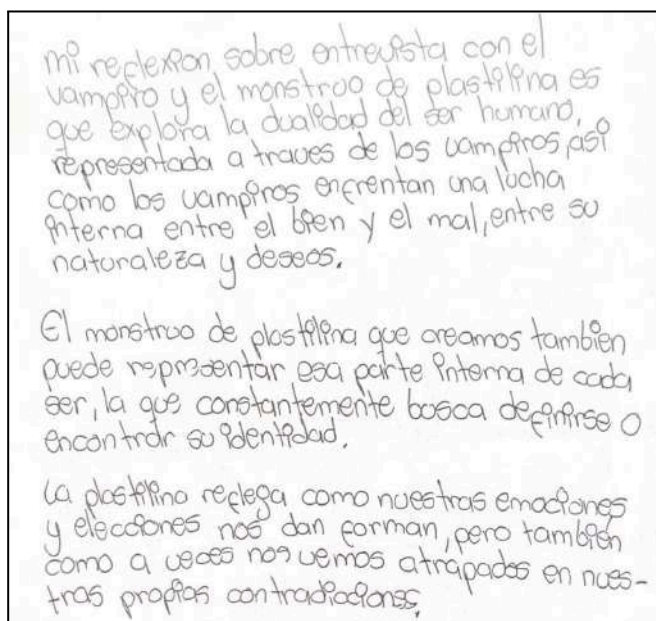 mi reflexion sobre entrevista con el
vampiro y el monstruo de plastilina es
que explora la dualidad del ser humano,
representada a traves de los vampiros, asi
como los vampiros enfrentan una lucha
interna entre el bien y el mal, entre su
naturaleza y deseos.
El monstruo de plastilina que creamos tambien
puede representar esa parte interna de cada
ser, la que constantemente busca definirse o
encontrar su identidad.
La plastilina reflega como nuestras emociones
y elecciones nos dan forman, pero también
como a veces nos vemos atrapados en nues-
tras propias contradicciones.